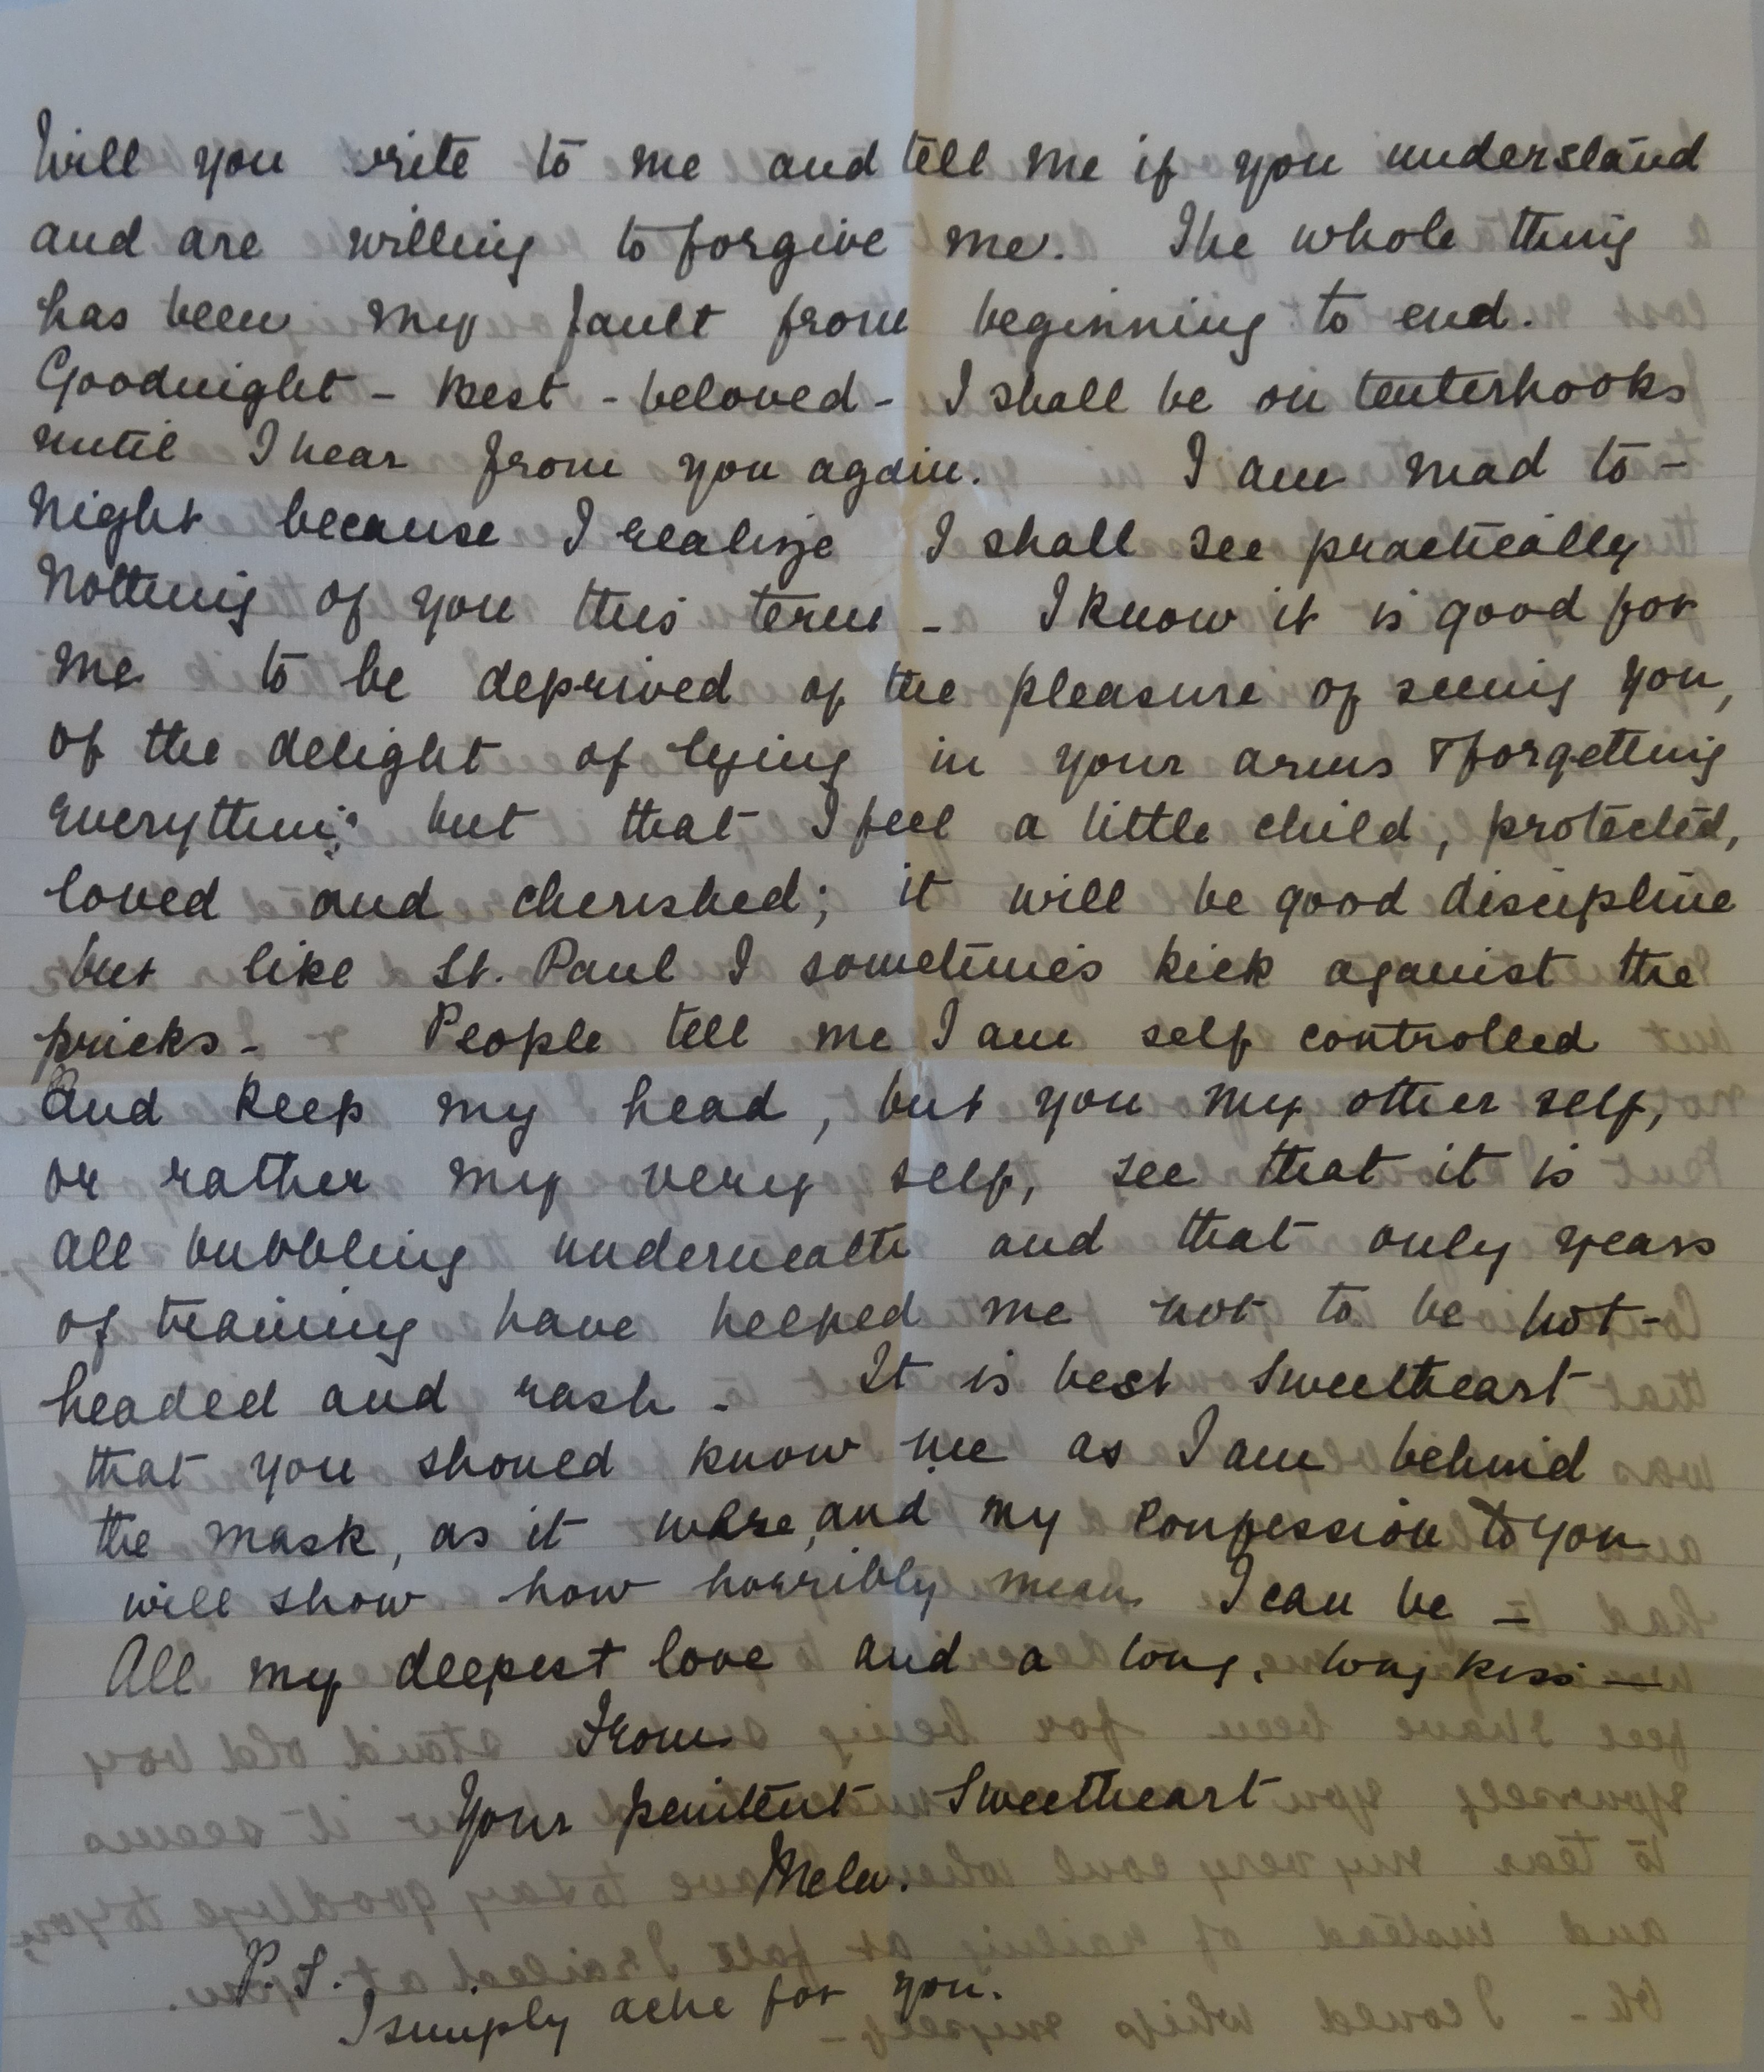 Will you write to me and tell me if you understand
and are willing to forgive me. The whole thing
has been my fault from beginning to end.
Goodnight - Best - beloved - I shall be on tenterhooks
until I hear from you again. I am mad to-
night because I realize I shall see practically
nothing of you this term - I know it is good for
me to be deprived of the pleasure of seeing you,
of the delight of lying in your arms & forgetting
everything but that I feel a little child, protected,
loved and cherished; it will be good discipline
but like St. Paul I sometimes kick against the
pricks - People tell me I am self controlled
and keep my head, but you my other self,
or rather my very self, see that it is
all bubbling underneath and that only years
of training have helped me not to be hot-
headed and rash - It is best Sweetheart
that you should know me as I am behind
the mask, as it were, and my confession to you
will show how horribly mean I can be -
All my deepest love and a long, long kiss -
From
Your penitent Sweetheart
P.S.
I simply ache for you.